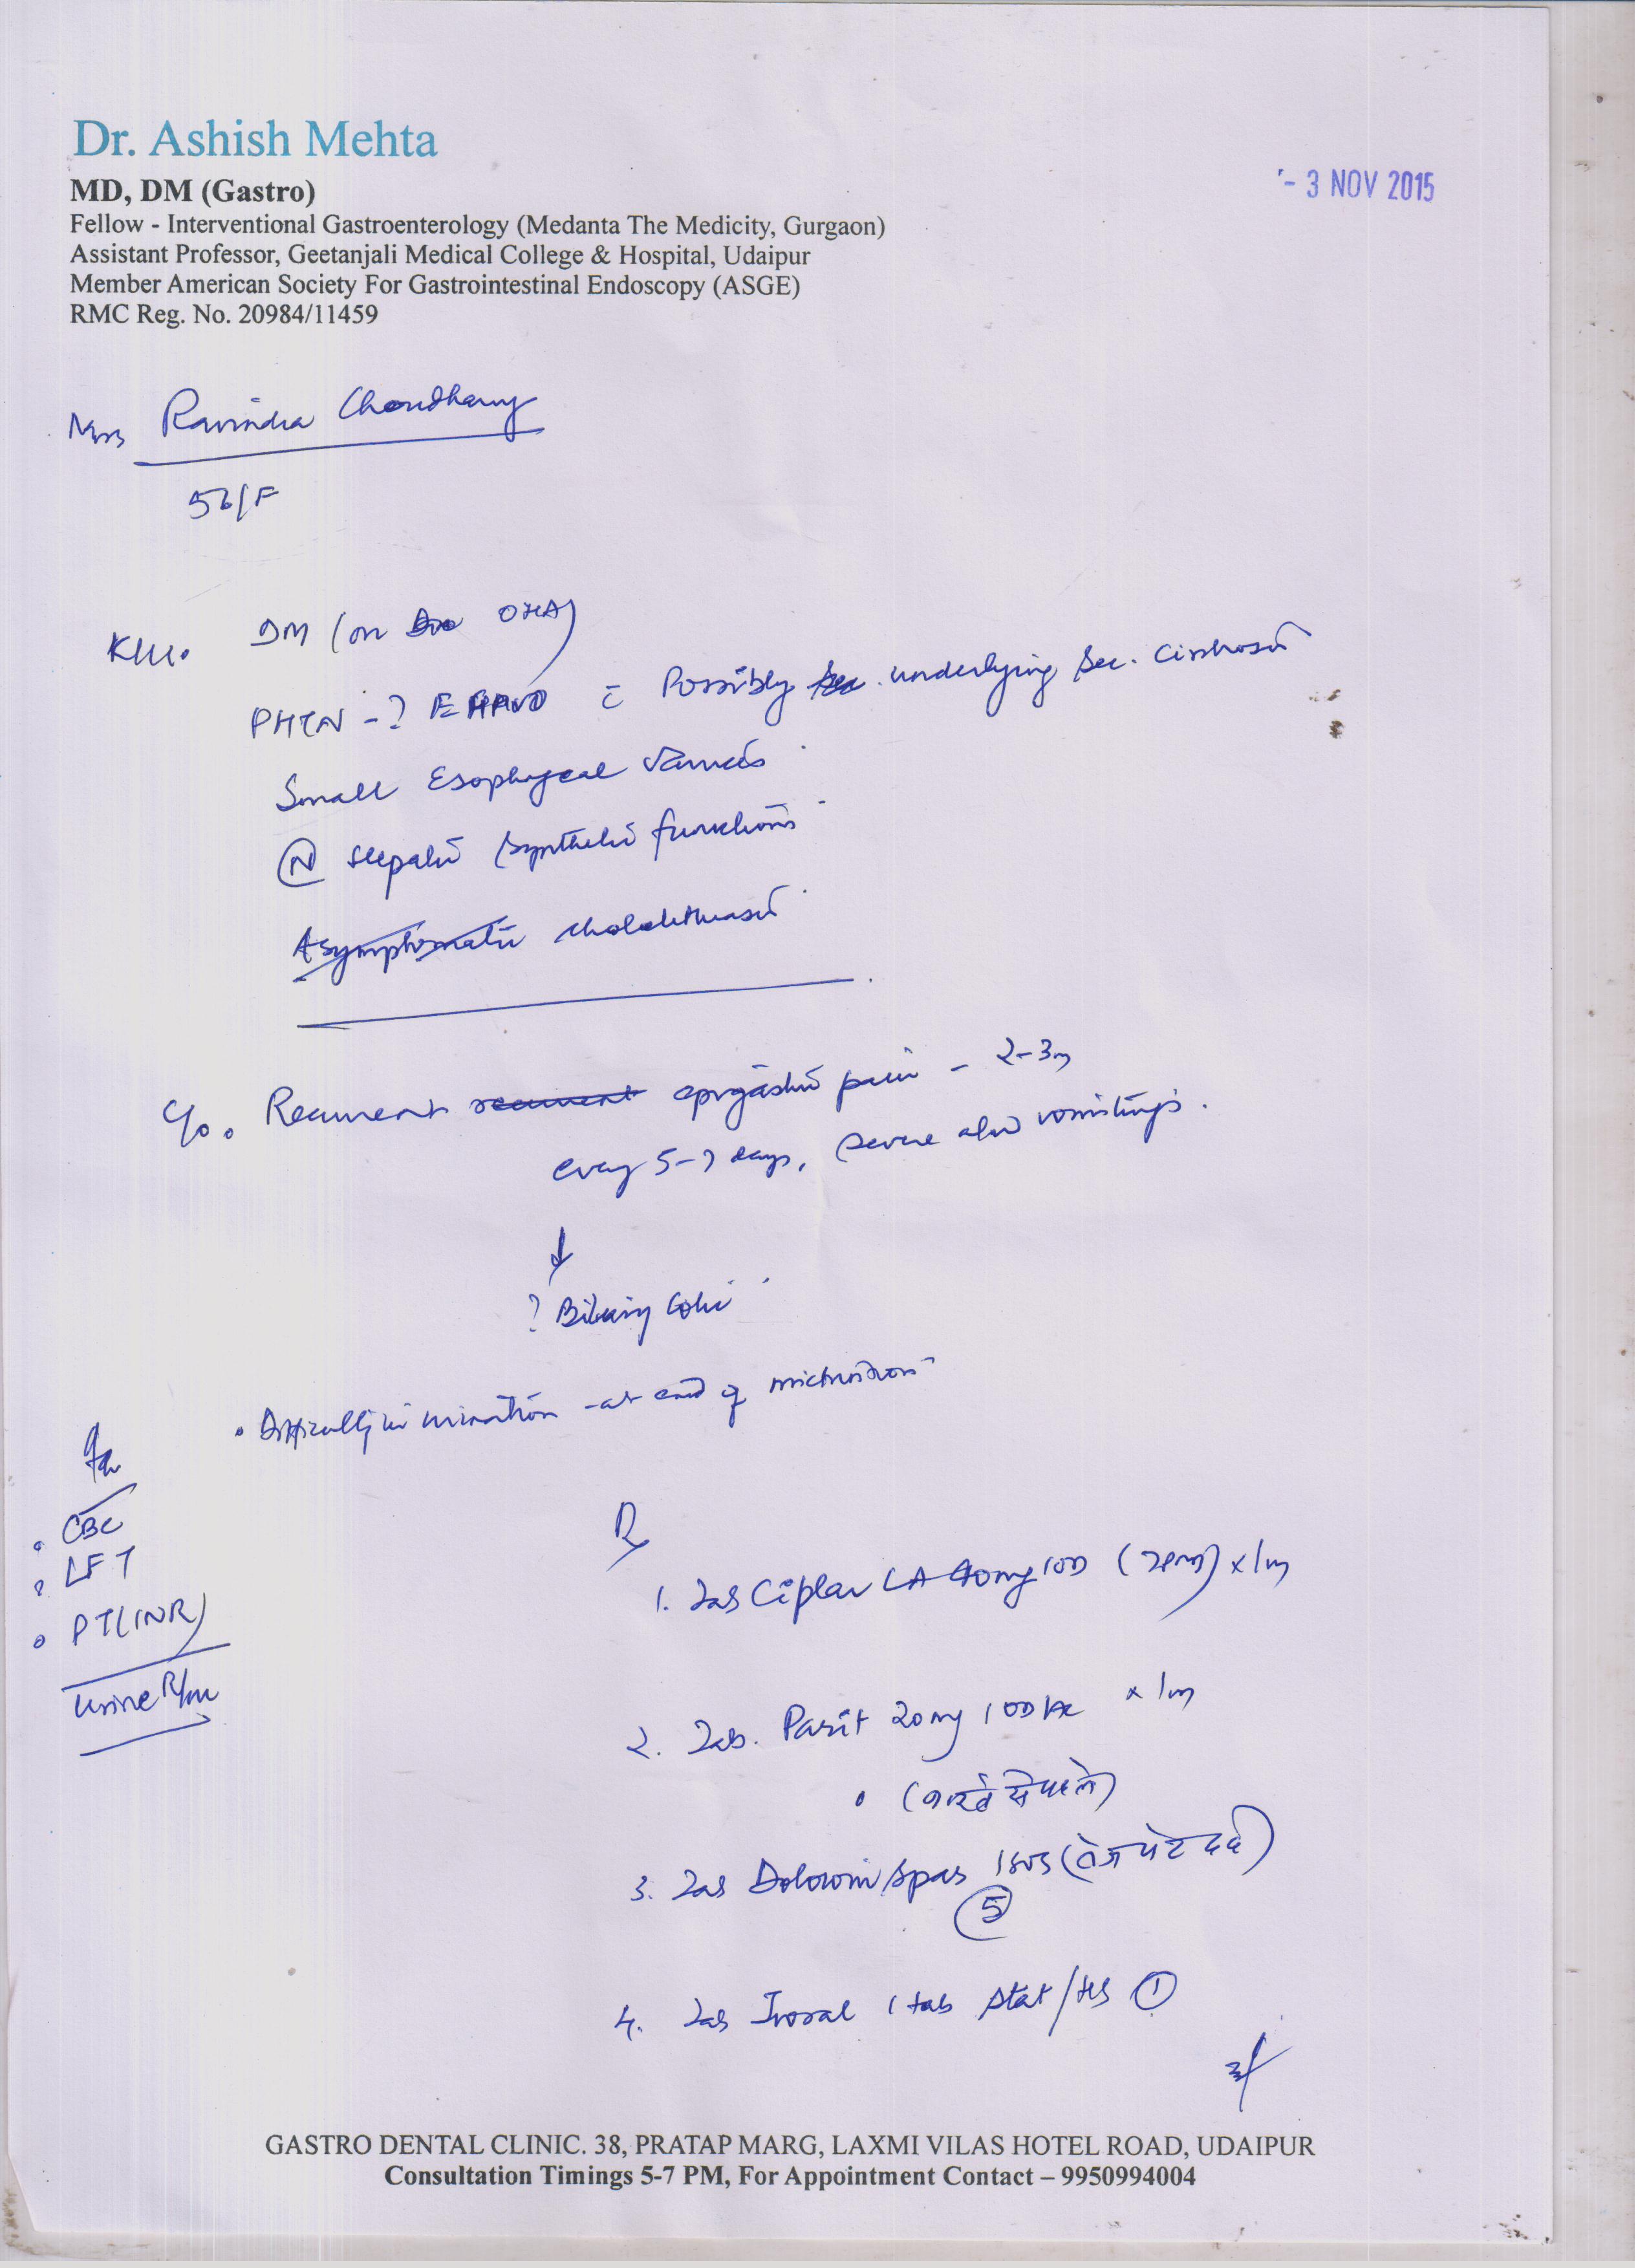 Dr. Ashish Mehta
MD, DM (Gastro)
- 3 NOV 2015
Fellow - Interventional Gastroenterology (Medanta The Medicity, Gurgaon)
Assistant Professor, Geetanjali Medical College & Hospital, Udaipur
Member American Society For Gastrointestinal Endoscopy (ASGE)
RMC Reg. No. 20984/11459
Mrs Ravindra Choudhary
56/F
DM (on OHA)
PHTN - ? EHPVO c̄ Possibly underlying Sec. Cirrhosis
Small Esophageal Varices
(N) Hepatic Synthetic functions
Asymptomatic Cholelithiasis
C/o. Recurrent recurrent epigastric pain - 2-3m
every 5-7 days, severe also vomitings.
↓
? Biliary Colic
• Difficulty in urination - at end of micturition
• CBC
• LFT
• PT(INR)
Urine R/M
Rx
1. Tab Ciplar LA 40mg 1OD (2PM) x 1m
2. Tab. Parit 20mg 1 OD x 1m
3. Tab Dolowin Spas 1 SOS (तेज पेट दर्द)
5
4. Tab Ivoral 1 tab Stat/HS 1
GASTRO DENTAL CLINIC. 38, PRATAP MARG, LAXMI VILAS HOTEL ROAD, UDAIPUR
Consultation Timings 5-7 PM, For Appointment Contact – 9950994004